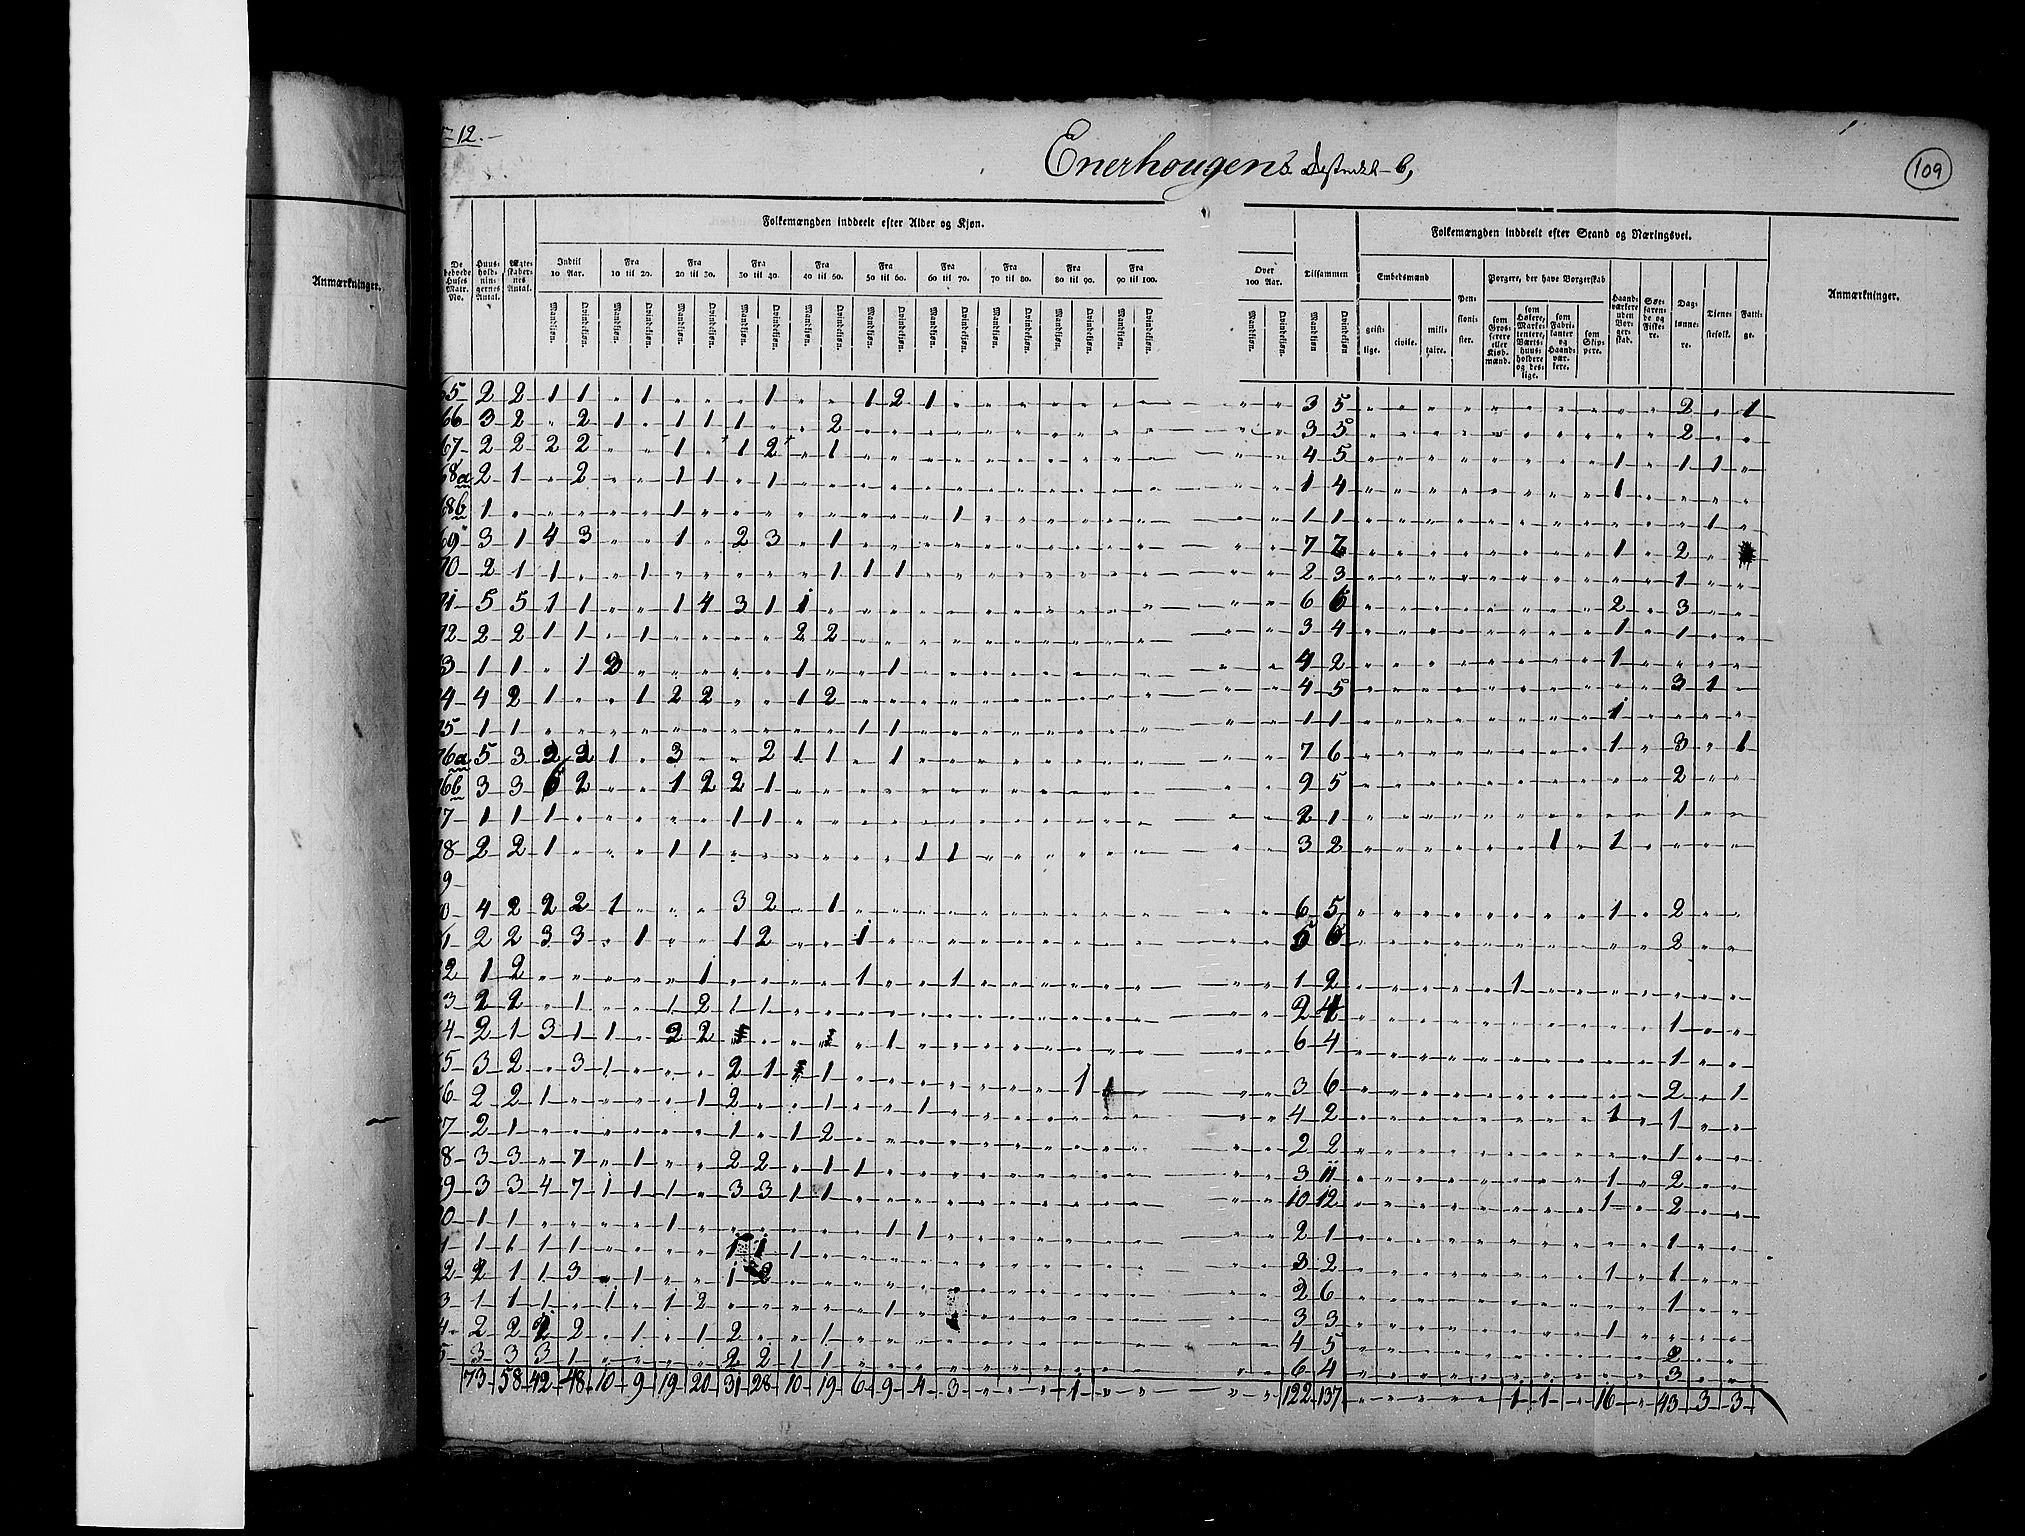 12.
Enerhougens Destrickt 6,
109
Anmærkninger.
De beboede Huses Matr. No.
Huusholdningernes Antal.
Ægteskabernes Antal.
Folkemængden inddeelt efter Alder og Kjøn.
Indtil 10 Aar. Fra 10 til 20. Fra 20 til 30. Fra 30 til 40. Fra 40 til 50. Fra 50 til 60. Fra 60 til 70. Fra 70 til 80. Fra 80 til 90. Fra 90 til 100. Over 100 Aar. Tilsammen
Mandkjøn. Qvindekjøn. Mandkjøn. Qvindekjøn. Mandkjøn. Qvindekjøn. Mandkjøn. Qvindekjøn. Mandkjøn. Qvindekjøn. Mandkjøn. Qvindekjøn. Mandkjøn. Qvindekjøn. Mandkjøn. Qvindekjøn. Mandkjøn. Qvindekjøn. Mandkjøn. Qvindekjøn. Mandkjøn. Qvindekjøn. Mandkjøn Qvindekjøn
Folkemængden inddeelt efter Stand og Næringsvei.
Embedsmænd
geistlige. civile. militaire.
Pensionister.
Borgere, der have Borgerskab
som Grosserere eller Kjøbmænd.
som Høkere, Marketentere, Værtshuusholdere og deslige.
som Fabrikanter og Haandværkere.
som Skippere.
Haandværkere uden Borgerskab.
Søefarende og Fiskere.
Daglønnere.
Tjenestefolk.
Fattige.
Anmærkninger.
65 2 2 1 1 " 1 " " " 1 " " 1 2 1 3 5 2 " 1
66 3 2 " 2 1 " 1 1 1 " " 2 3 5 2
67 2 2 2 2 " " 1 " 1 2 " 1 4 5 1 " 1 1
68a 2 1 " 2 " " 1 1 " 1 1 4 1
68b 1 " " " " " 1 " " " " " " " " 1 1 1 1
69 3 1 4 3 " " 1 " 2 3 " 1 7 7 1 " 2
70 2 1 1 " " 1 " " " " " 1 1 1 2 3 1
71 5 5 1 1 " " 1 4 3 1 1 6 6 2 " 3
72 2 2 1 1 " 1 " " " " 2 2 3 4 1 " 1
73 1 1 " 1 3 " " " " " 1 " " 1 4 2 1
74 4 2 1 " " 1 2 2 " " 1 2 4 5 3 1
75 1 1 " " " " " " " " " " 1 1 1 1 1
76a 5 3 2 2 1 " 3 " " 2 1 1 " 1 7 6 1 " 3 " 1
76b 3 3 6 2 " " 1 2 2 1 9 5 2
77 1 1 1 " " " " " 1 1 2 1 1
78 2 2 1 " " " 1 1 " " " " " " 1 1 3 2 1 " 1
9
0 4 2 2 2 1 " " " 3 2 " 1 6 5 1 " 2
1 2 2 3 3 " 1 " " 1 2 " " 1 5 6 2
2 1 2 " " " " " 1 " " " " 1 " " 1 1 2 1
3 2 2 " 1 " " 1 2 1 1 2 4 1
4 2 1 3 1 1 " 2 2 " " " " " 1 6 4 1
5 3 2 " 3 1 " " " 2 1 " 1 " " " " " " " 1 3 6 2 " 1
6 2 2 1 " " " " 1 2 " " 1 " " 1 4 2 1 " 1
7 2 1 " " " " " " 1 " 1 2 2 2 1
8 3 3 " 7 " 1 " " 2 2 " 1 1 3 11 1 " 2
9 3 3 4 7 1 1 1 " 3 3 1 1 10 12 1 " 2
0 1 1 " " " " 1 " " " " " " 1 1 2 1 1
1 1 1 1 1 " " " " 1 1 1 3 2 1 " 1
2 2 1 1 3 " 1 " " 1 2 2 6 1
3 1 1 1 " 1 " 1 2 " " " " " 1 3 3 1
4 2 2 2 2 " 1 " 1 2 " " 1 4 5 2
5 3 3 3 1 " " " " 2 2 1 1 6 4 3
73 58 42 48 10 9 19 20 31 28 10 19 6 9 4 3 " " " 1 " " " " 122 137 " " " " 1 1 " 16 " 43 3 3